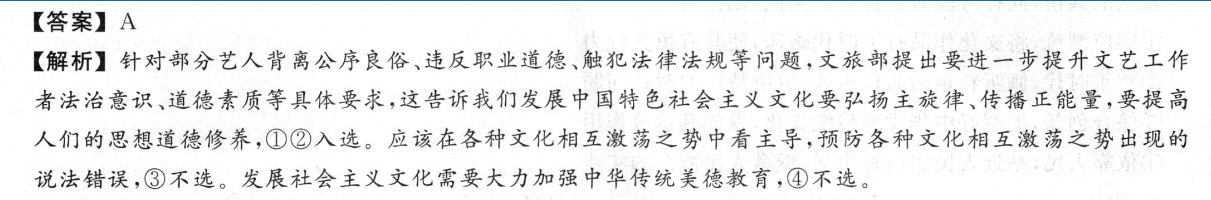 【答案】A
【解析】针对部分艺人背离公序良俗、违反职业道德、触犯法律法规等问题,文旅部提出要进一步提升文艺工作
者法治意识、道德素质等具体要求,这告诉我们发展中国特色社会主义文化要弘扬主旋律、传播正能量,要提高
人们的思想道德修养,①②入选。应该在各种文化相互激荡之势中看主导,预防各种文化相互激荡之势出现的
说法错误,③不选。发展社会主义文化需要大力加强中华传统美德教育,④不选。